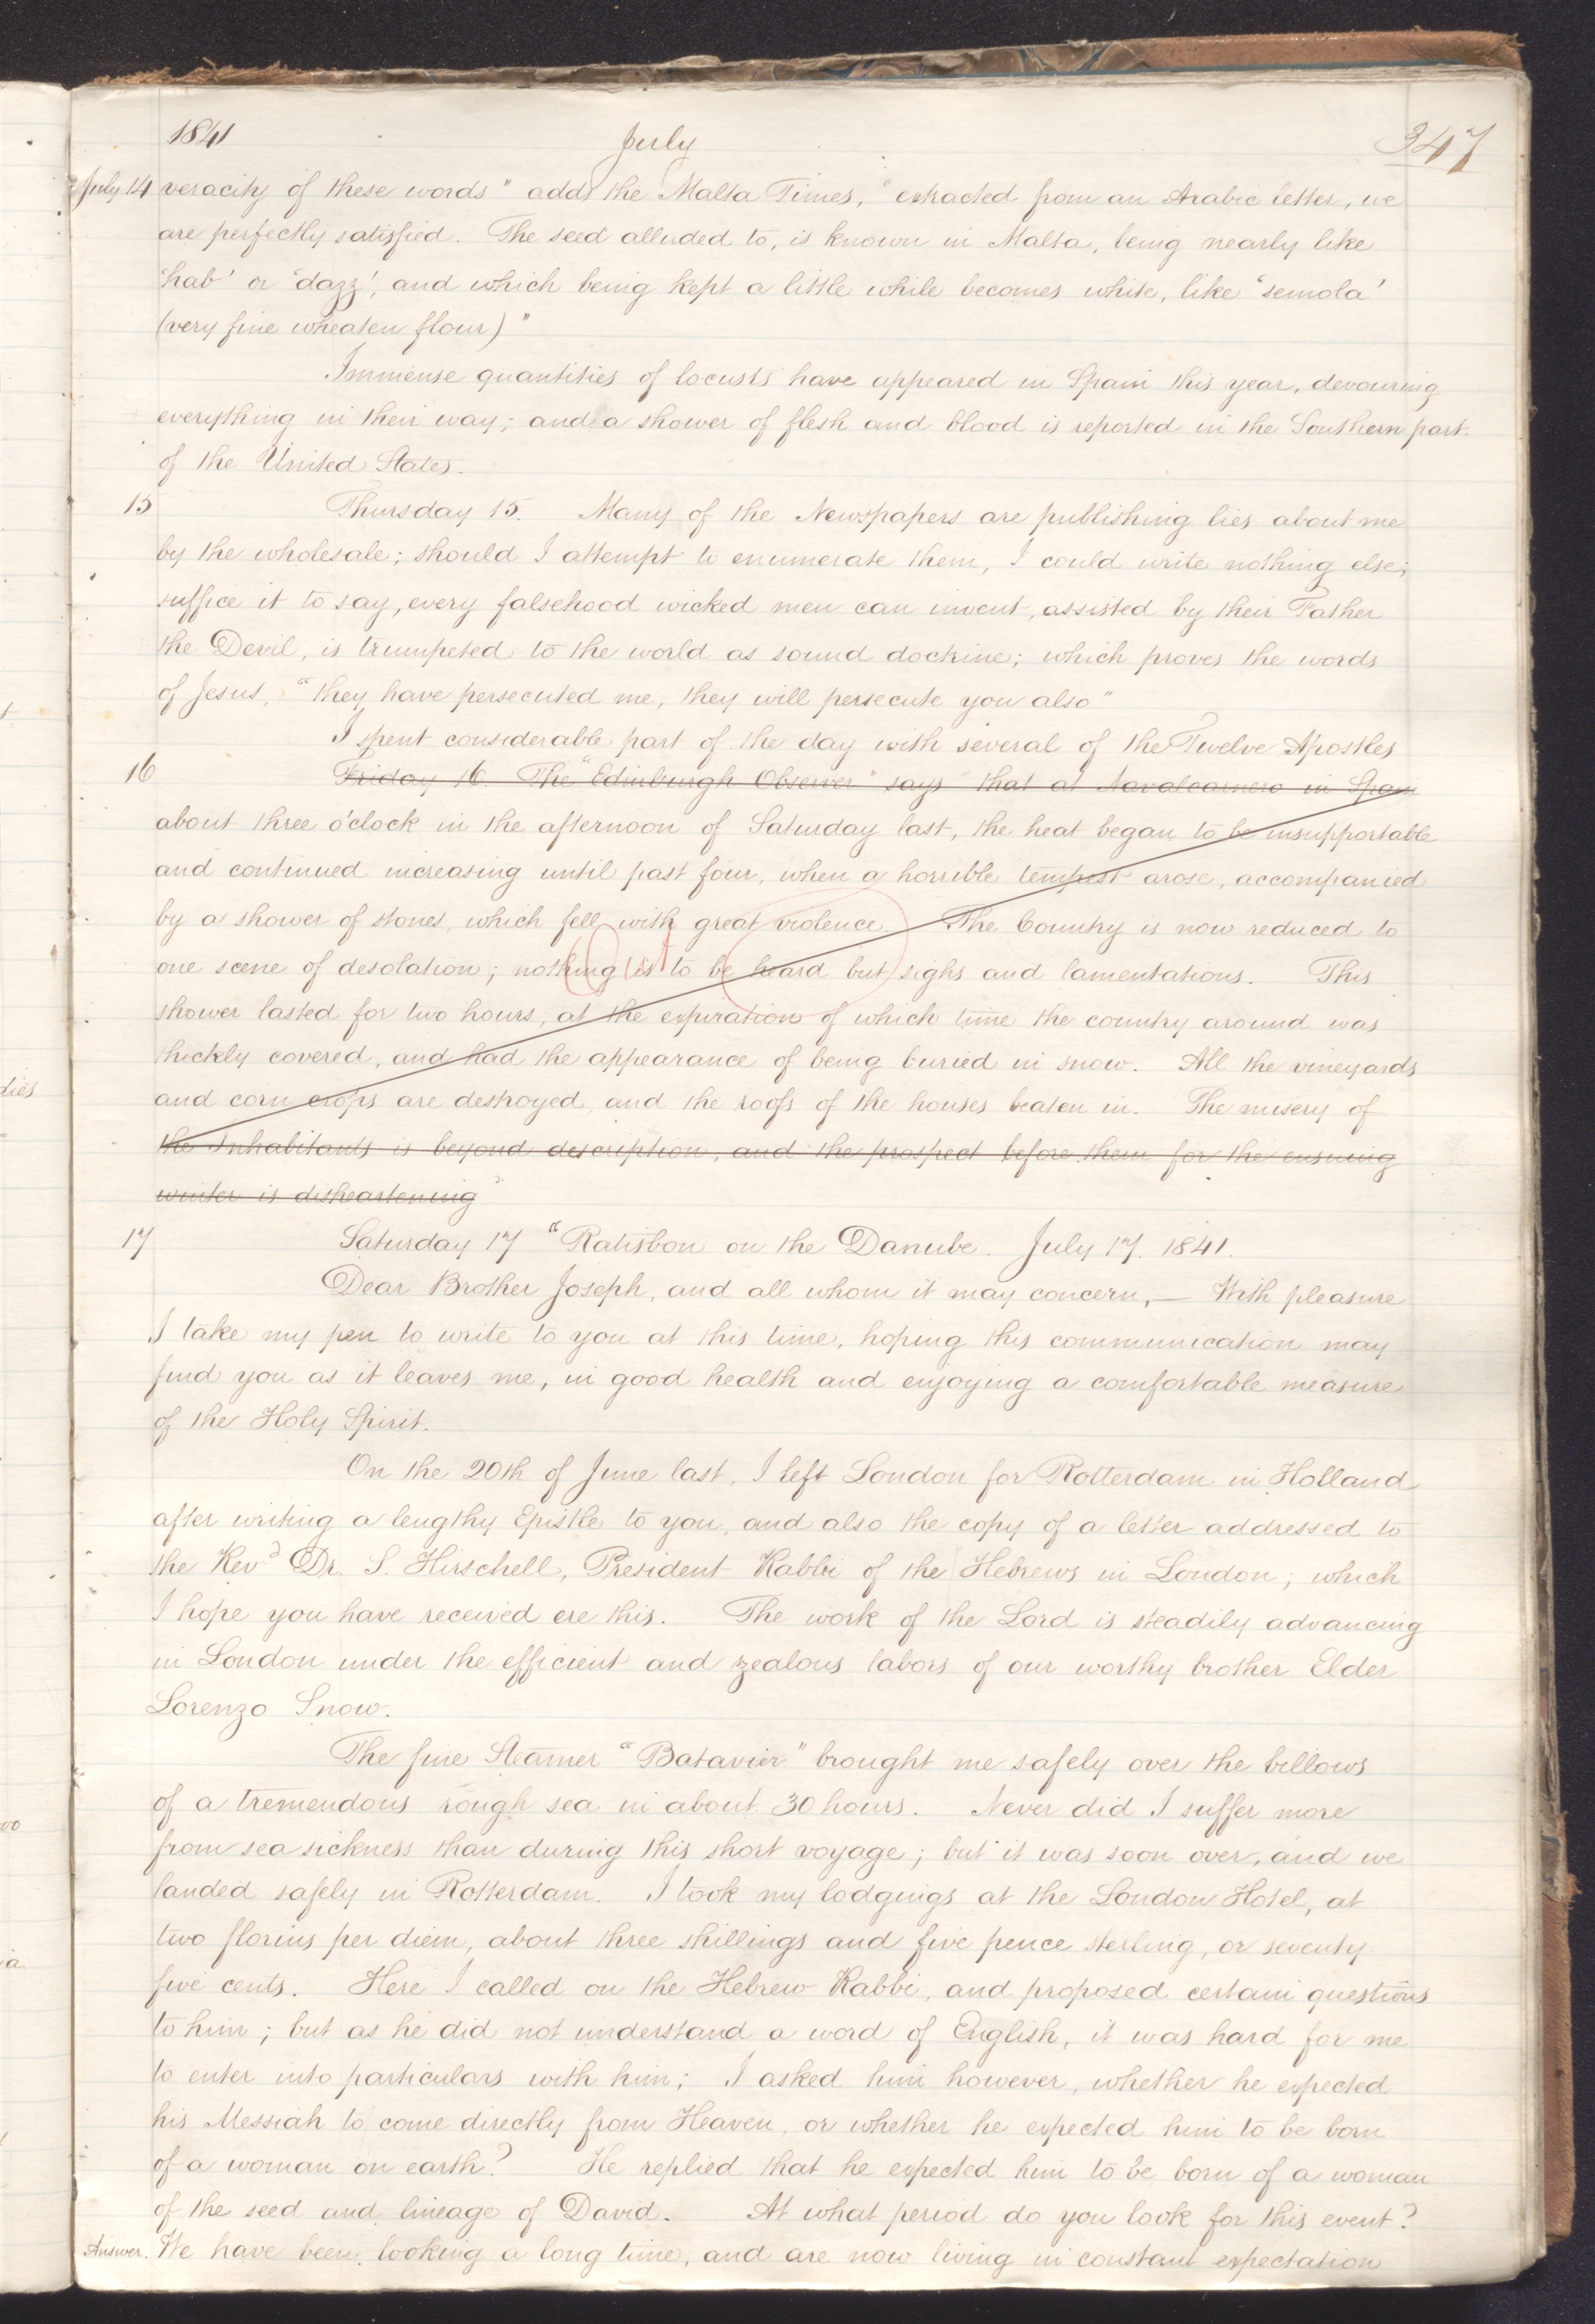 1841 July 347
July 14 veracity of these words" adds the Malta Times, "extracted from an Arabic letter, we
are perfectly satisfied. The seed alluded to, is known in Malta, being nearly like
'hab' or 'dazz', and which being kept a little while becomes white, like 'semola'
(very fine wheaten flour)"
Immense quantities of locusts have appeared in Spain this year, devouring
everything in their way; and a shower of flesh and blood is reported in the Southern part
of the United States.
15 Thursday 15. Many of the Newspapers are publishing lies about me
by the wholesale; should I attempt to enumerate them, I could write nothing else;
suffice it to say, every falsehood wicked men can invent, assisted by their Father
the Devil, is trumpeted to the world as sound doctrine; which proves the words
of Jesus, "they have persecuted me, they will persecute you also"
I spent considerable part of the day with several of the Twelve Apostles
16 Friday 16. The "Edinburgh Observer" says "that at Navalcarnero in Spain
about three o'clock in the afternoon of Saturday last, the heat began to be insupportable
and continued increasing until past four, when a horrible tempest arose, accompanied
by a shower of stones, which fell with great violence. The Country is now reduced to
one scene of desolation; nothing is to be heard but sighs and lamentations. This
shower lasted for two hours, at the expiration of which time the country around was
thickly covered, and had the appearance of being buried in snow. All the vineyards
and corn crops are destroyed, and the roofs of the houses beaten in. The misery of
the Inhabitants is beyond description, and the prospect before them for the ensuing
winter is disheartening"
17 Saturday 17 "Ratisbon on the Danube. July 17. 1841.
Dear Brother Joseph, and all whom it may concern,— With pleasure
I take my pen to write to you at this time, hoping this communication may
find you as it leaves me, in good health and enjoying a comfortable measure
of the Holy Spirit.
On the 20th of June last, I left London for Rotterdam in Holland
after writing a lengthy Epistle to you, and also the copy of a letter addressed to
the Revd Dr. S. Hirschell, President Rabbi of the Hebrews in London; which
I hope you have received ere this. The work of the Lord is steadily advancing
in London under the efficient and zealous labors of our worthy brother Elder
Lorenzo Snow.
The fine Steamer "Batavier" brought me safely over the billows
of a tremendous rough sea in about 30 hours. Never did I suffer more
from sea sickness than during this short voyage; but it was soon over, and we
landed safely in Rotterdam. I took my lodgings at the London Hotel, at
two florins per diem, about three shillings and five pence sterling, or seventy
five cents. Here I called on the Hebrew Rabbi, and proposed certain questions
to him; but as he did not understand a word of English, it was hard for me
to enter into particulars with him; I asked him however, whether he expected
his Messiah to come directly from Heaven, or whether he expected him to be born
of a woman on earth? He replied that he expected him to be born of a woman
of the seed and lineage of David. At what period do you look for this event?
Answer. We have been looking a long time, and are now living in constant expectation